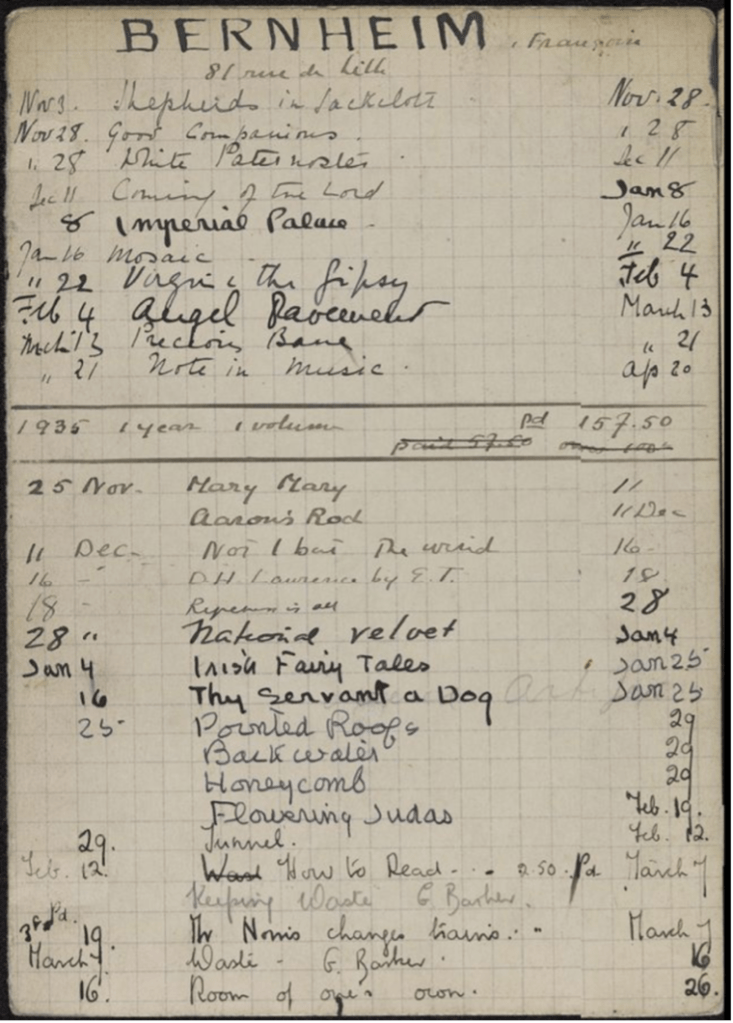 BERNHEIM, Françoise
81 rue de Lille
Nov 3. Shepherds in Sackcloth Nov. 28.
Nov 28. Good Companions. " 28
" 28 White Paternoster Dec 11
Dec 11 Coming of the Lord Jan 8
8 Imperial Palace Jan 16
Jan 16 Mosaic " 22
" 22 Virgin & the Gipsy Feb 4
Feb 4 Angel Pavement March 13
Mch 13 Precious Bane " 21
" 21 Note in Music Ap 20
1935 1 year 1 volume pd 157.50
paid 57.50 owes 100
25 Nov. Mary Mary 11
Aaron's Rod 11 Dec
11 Dec- Not I but the wind 16-
16 - D.H. Lawrence by E.T. 18
18 - Ripeness is all 28
28 " National Velvet Jan 4
Jan 4 Irish Fairy Tales Jan 25
16 Thy Servant a Dog Jan 25
25- Pointed Roofs 29
Backwater 29
Honeycomb 29
Flowering Judas Feb. 19.
29. Tunnel. Feb. 12.
Feb. 12. How to Read - - . 2.50. Pd March 7
Keeping Waste G. Barker.
3 fr Pd. 19. Mr Norris changes trains. - March 7
March 7 Waste - G. Barker. 16
16. Room of one's own. 26.